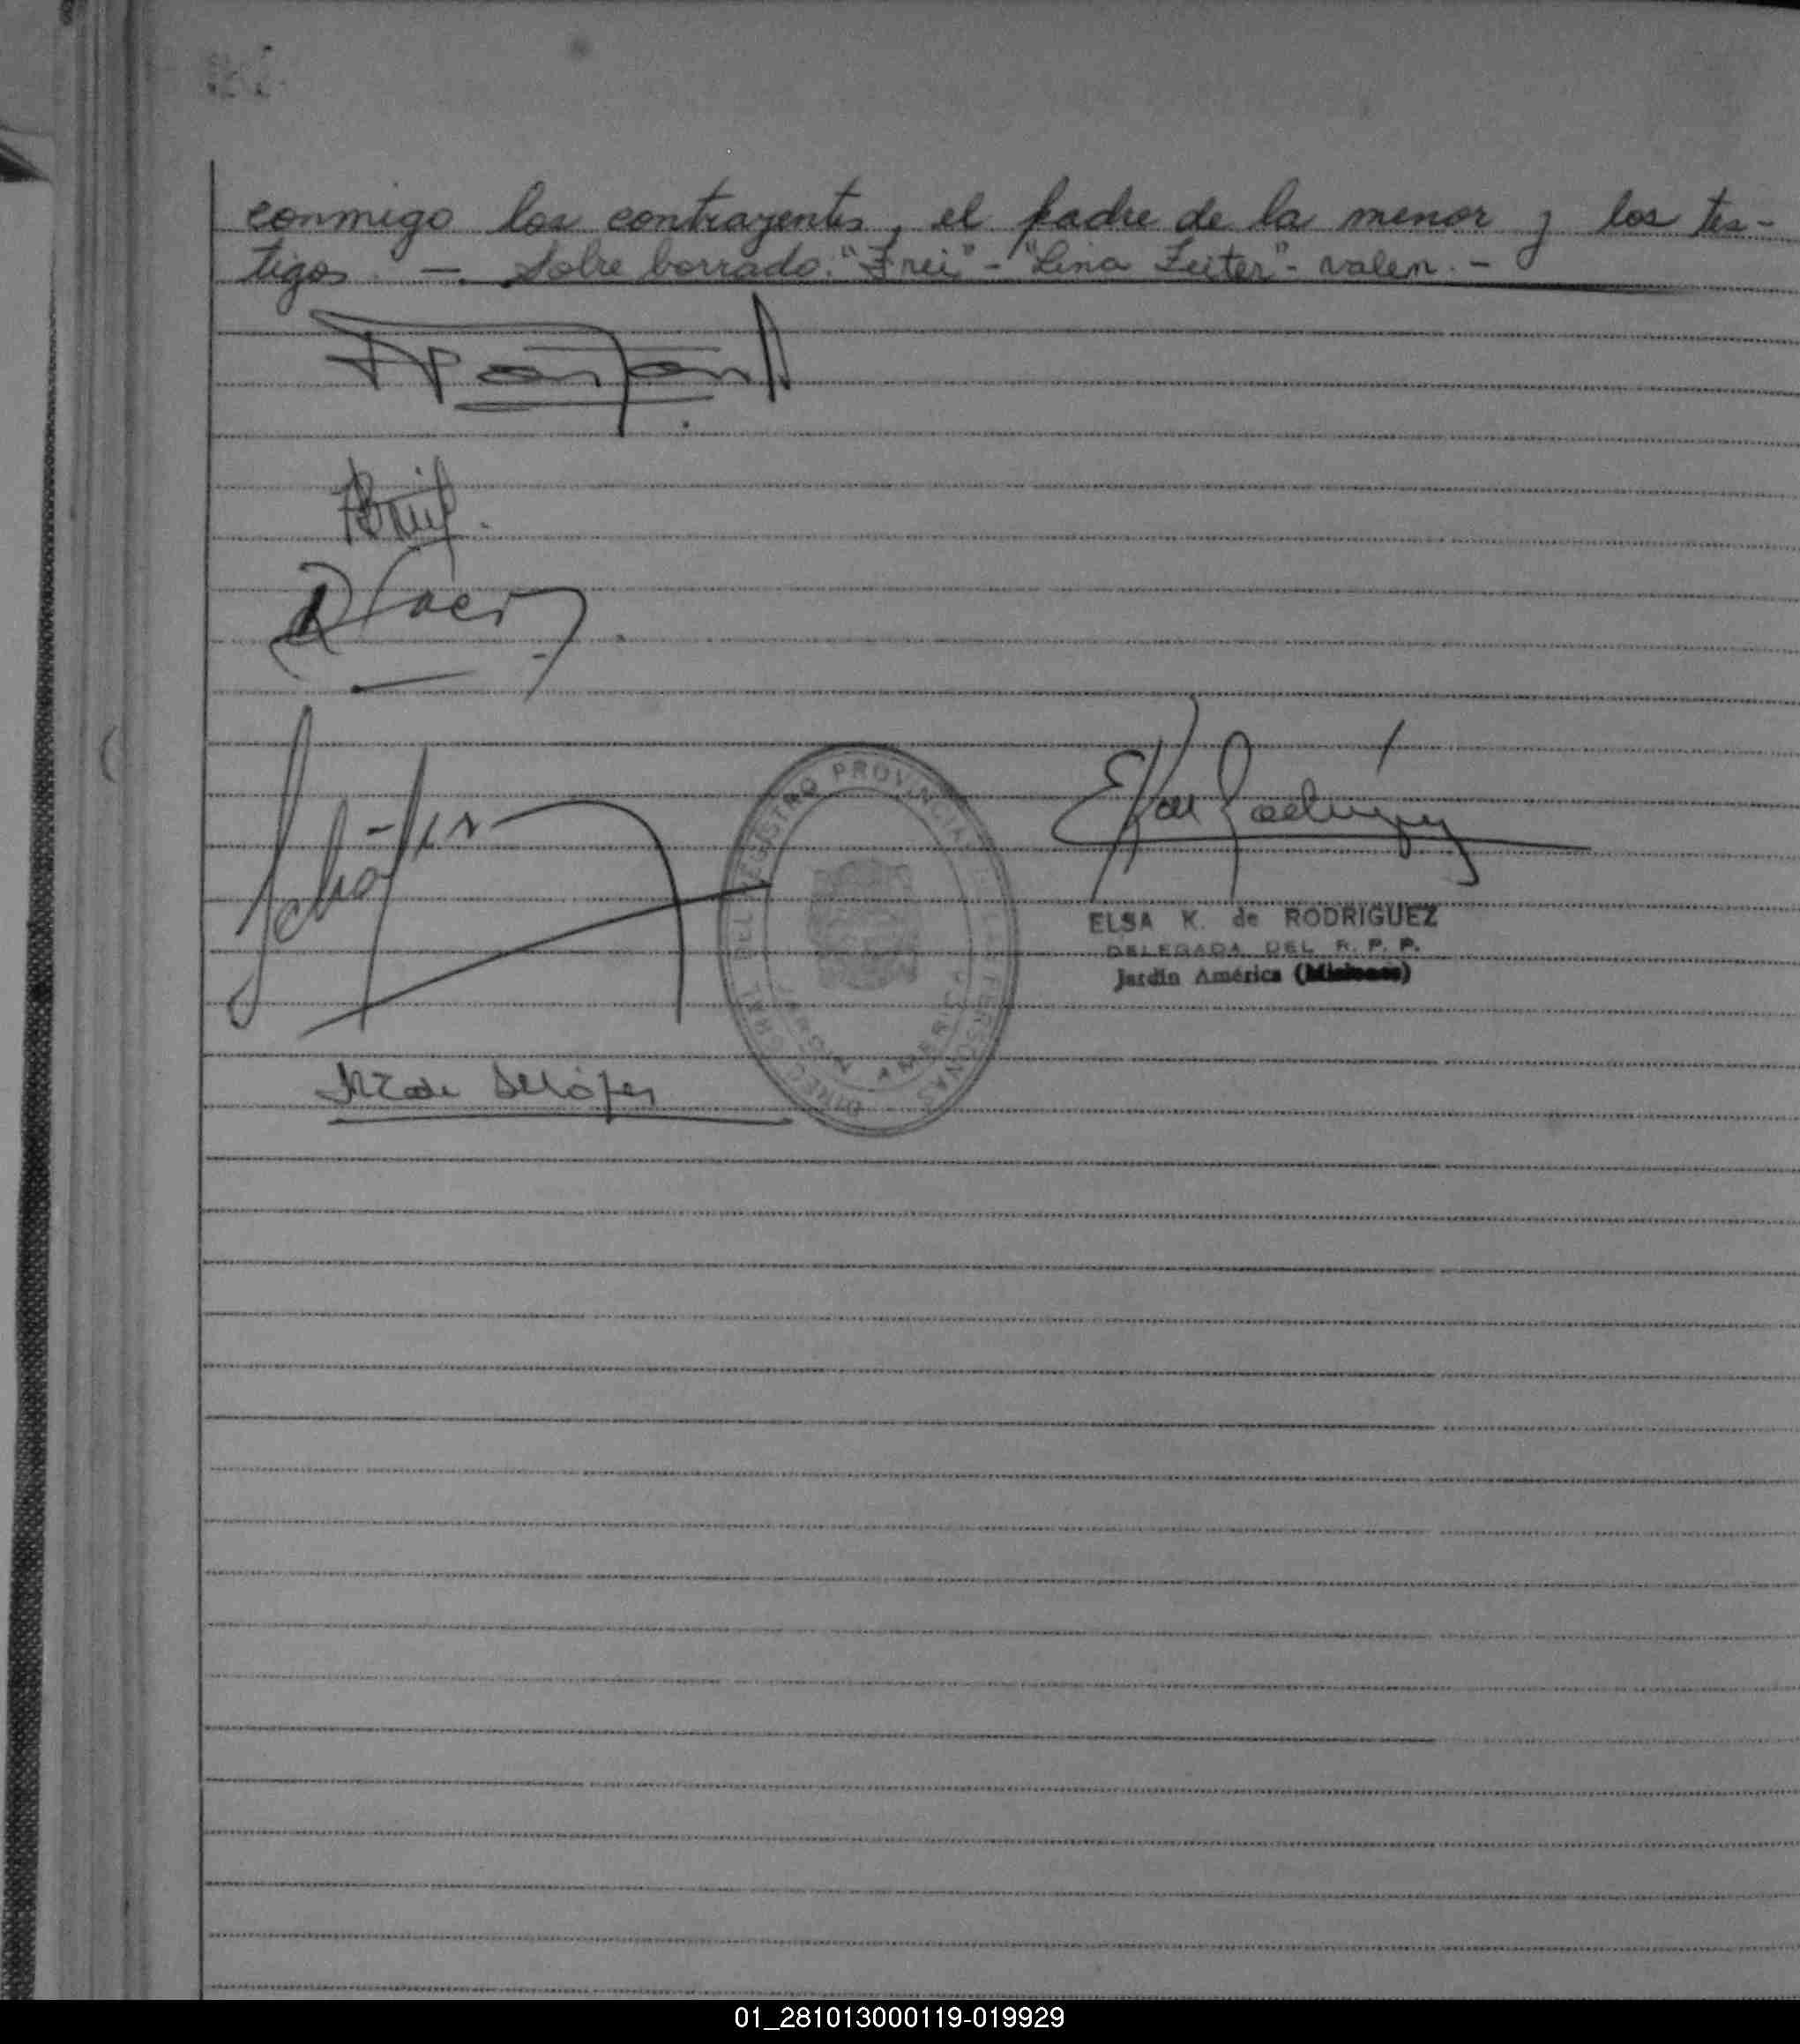 conmigo los contrayentes, el padre de la menor y los tes-
tigos. —. Sobre borrado: "Frei" - "Lina Zeiter" - valen. -
DIREC. GRAL. DEL REGISTRO PROVINCIAL DE LAS PERSONAS
JARDIN AMERICA
ELSA K. de RODRIGUEZ
DELEGADA DEL R. P. P.
Jardín América (Misiones)
01_281013000119-019929